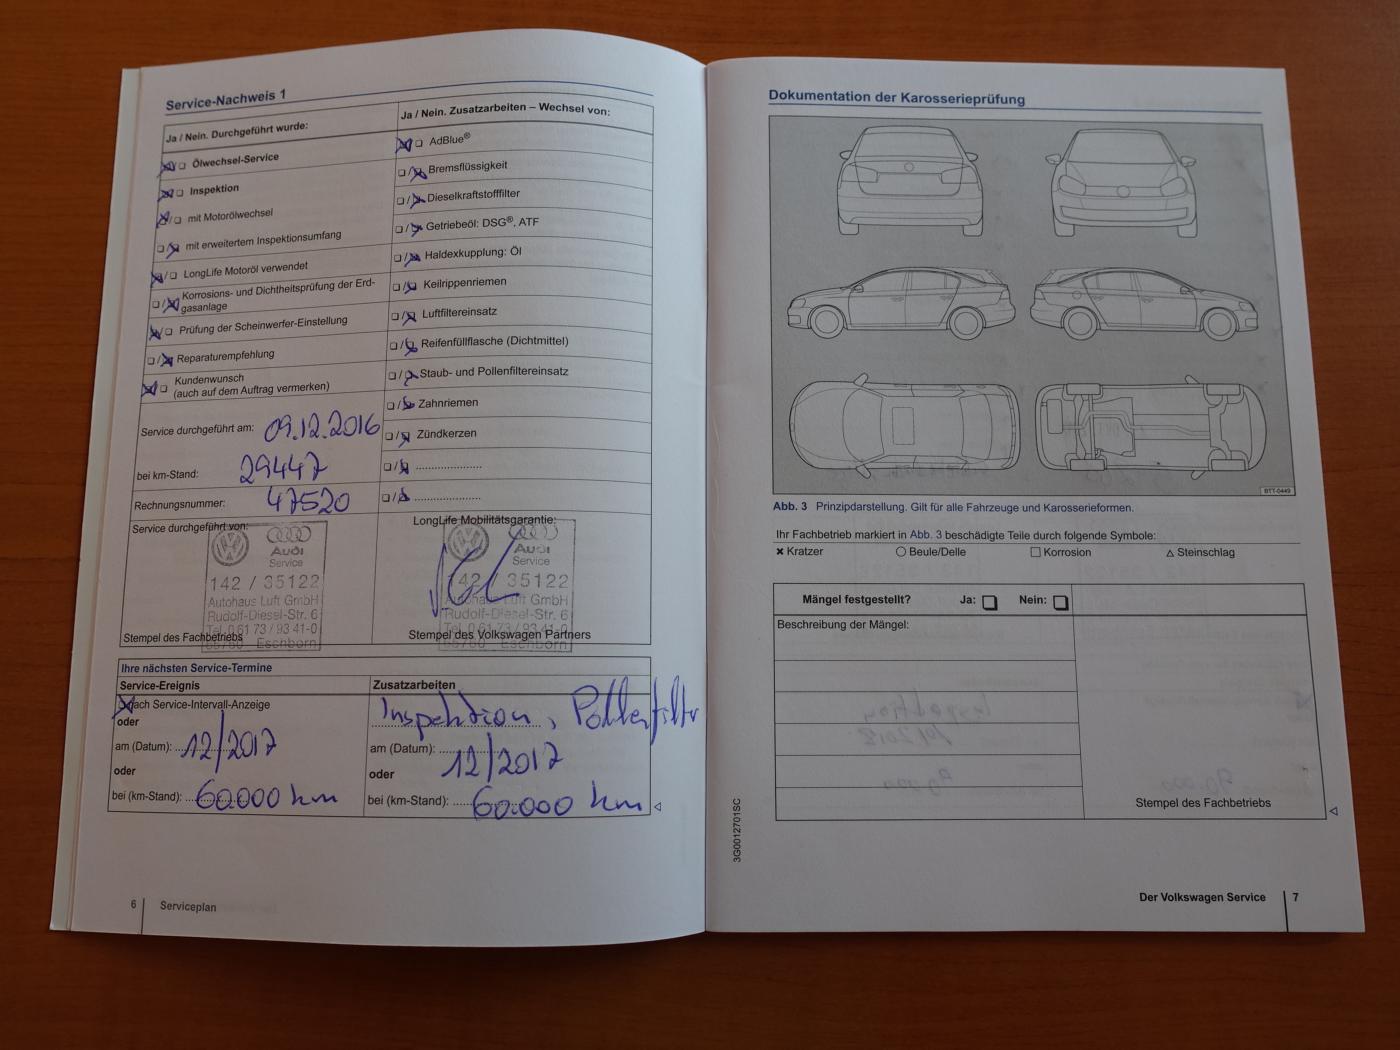 Service-Nachweis 1
Ja / Nein. Durchgeführt wurde:
Ölwechsel-Service
Inspektion
mit Motorölwechsel
mit erweitertem Inspektionsumfang
LongLife Motoröl verwendet
Korrosions- und Dichtheitsprüfung der Erd-
gasanlage
Prüfung der Scheinwerfer-Einstellung
Reparaturempfehlung
Kundenwunsch
(auch auf dem Auftrag vermerken)
Service durchgeführt am: 09.12.2016
bei km-Stand: 29447
Rechnungsnummer: 47520
Service durchgeführt von:
Audi
Service
142 / 35122
Autohaus Luft GmbH
Rudolf-Diesel-Str. 6
Tel. 0 61 73 / 93 41-0
65760 Eschborn
Stempel des Fachbetriebs
Ja / Nein. Zusatzarbeiten – Wechsel von:
AdBlue®
Bremsflüssigkeit
Dieselkraftstofffilter
Getriebeöl: DSG®, ATF
Haldexkupplung: Öl
Keilrippenriemen
Luftfiltereinsatz
Reifenfüllflasche (Dichtmittel)
Staub- und Pollenfiltereinsatz
Zahnriemen
Zündkerzen
LongLife Mobilitätsgarantie:
Audi
Service
142 / 35122
Autohaus Luft GmbH
Rudolf-Diesel-Str. 6
Tel. 0 61 73 / 93 41-0
65760 Eschborn
Stempel des Volkswagen Partners
Ihre nächsten Service-Termine
Service-Ereignis
nach Service-Intervall-Anzeige
oder
am (Datum): 12/2017
oder
bei (km-Stand): 60.000 km
Zusatzarbeiten
Inspektion, Pollenfilter
am (Datum): 12/2017
oder
bei (km-Stand): 60.000 km
6 Serviceplan
Dokumentation der Karosserieprüfung
BTT-0449
Abb. 3 Prinzipdarstellung. Gilt für alle Fahrzeuge und Karosserieformen.
Ihr Fachbetrieb markiert in Abb. 3 beschädigte Teile durch folgende Symbole:
Kratzer
Beule/Delle
Korrosion
Steinschlag
Mängel festgestellt? Ja: Nein:
Beschreibung der Mängel:
Stempel des Fachbetriebs
3G0012701SC
Der Volkswagen Service 7